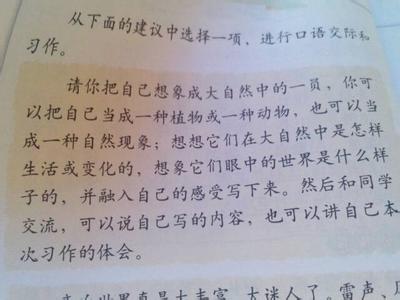 从下面的建议中选择一项，进行口语交际和
习作。
请你把自己想象成大自然中的一员，你可
以把自己当成一种植物或一种动物，也可以当
成一种自然现象；想想它们在大自然中是怎样
生活或变化的，想象它们眼中的世界是什么样
子的，并融入自己的感受写下来。然后和同学
交流，可以说自己写的内容，也可以讲自己本
次习作的体会。
世界真是太丰富、太迷人了。雷声、